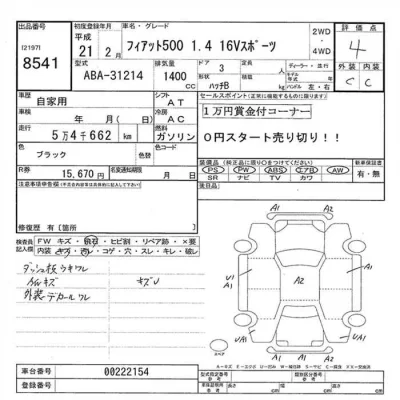 出品番号 初度登録年月 車名・グレード 2WD・4WD 評価点
[2197] 平成 21 2月 フィアット500 1.4 16Vスポーツ 4
8541 型式 ABA-31214 排気量 1400 CC ドア 3 ハッチB ディーラー・並行 モデル年式 年 ハンドル 左・右 外装 C 内装 C
車歴 自家用 シフト AT セールスポイント
車検 年 月( 日) 冷房 AC 1万円賞金付コーナー
走行 5万4千662 km 燃料 ガソリン 0円スタート売り切り!!
色 ブラック 色替 色コード
R券 15,670円 名変期限 月 日
装備品 PS PW ABS エアB AW SR ナビ TV カワ
新車保証書 有・無
注意事項申告欄
後日品
修復歴 有[箇所 ]
検査員記入欄 FW キズ・飛石・ヒビ割・リペア跡・×要
内装 キズ・汚レ・コゲ・穴・スレ・キレ・破レ
ダッシュ板ウキワレ
内外キズ キズU
外装デカールワレ
A1 A2
A1
U1 A1 A2 A1
UA1 UA1
スペア
A1 A1 A2
車台番号 00222154
登録番号